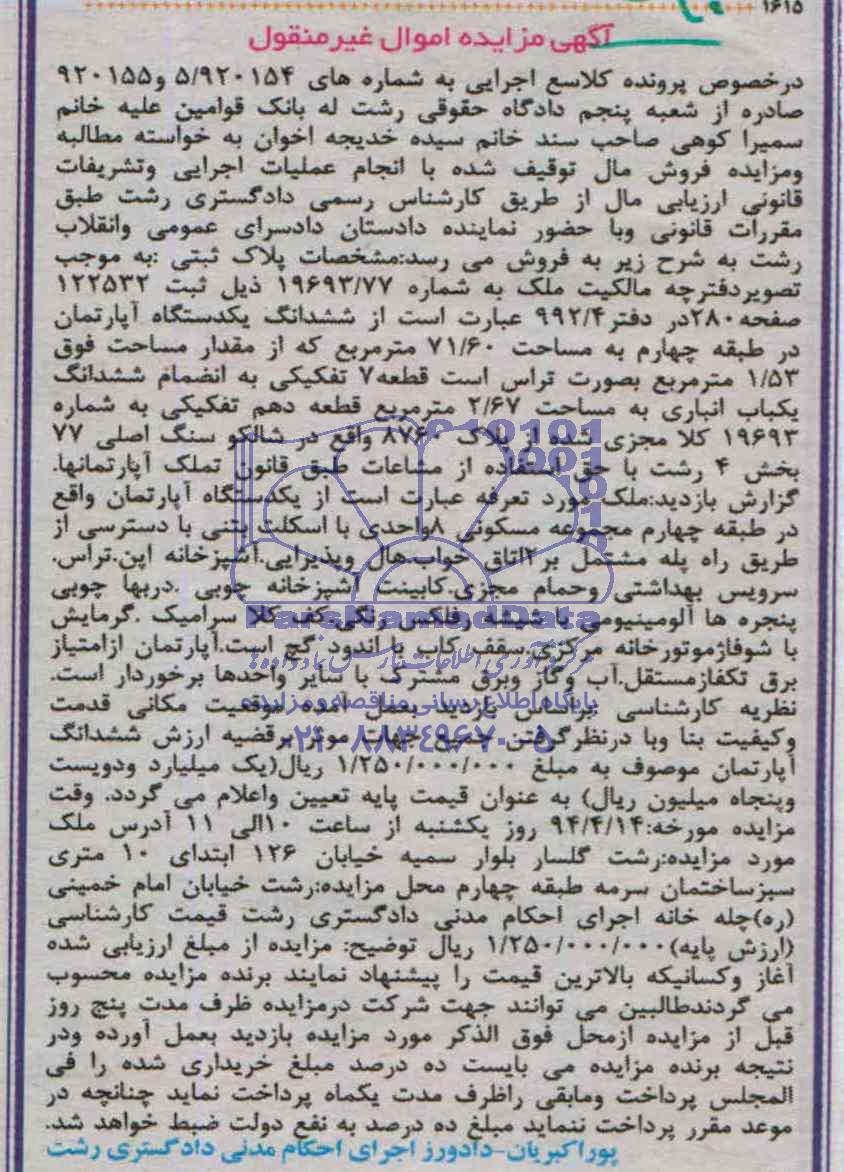 ۱۶۱۵
آگهی مزایده اموال غیرمنقول
درخصوص پرونده کلاسع اجرایی به شماره های ۵/۹۲۰۱۵۴ و۹۲۰۱۵۵
صادره از شعبه پنجم دادگاه حقوقی رشت له بانک قوامین علیه خانم
سمیرا کوهی صاحب سند خانم سیده خدیجه اخوان به خواسته مطالبه
ومزایده فروش مال توقیف شده با انجام عملیات اجرایی وتشریفات
قانونی ارزیابی مال از طریق کارشناس رسمی دادگستری رشت طبق
مقررات قانونی وبا حضور نماینده دادستان دادسرای عمومی وانقلاب
رشت به شرح زیر به فروش می رسد:مشخصات پلاک ثبتی :به موجب
تصویردفترچه مالکیت ملک به شماره ۱۹۶۹۳/۷۷ ذیل ثبت ۱۲۲۵۳۲
صفحه۲۸۰در دفتر۹۹۲/۴ عبارت است از ششدانگ یکدستگاه آپارتمان
در طبقه چهارم به مساحت ۷۱/۶۰ مترمربع که از مقدار مساحت فوق
۱/۵۳ مترمربع بصورت تراس است قطعه۷ تفکیکی به انضمام ششدانگ
یکباب انباری به مساحت ۲/۶۷ مترمربع قطعه دهم تفکیکی به شماره
۱۹۶۹۳ کلا مجزی شده از پلاک ۸۷۶۰ واقع در شالکو سنگ اصلی ۷۷
بخش ۴ رشت با حق استفاده از مشاعات طبق قانون تملک آپارتمانها.
گزارش بازدید:ملک مورد تعرفه عبارت است از یکدستگاه آپارتمان واقع
در طبقه چهارم مجموعه مسکونی ۸واحدی با اسکلت بتنی با دسترسی از
طریق راه پله مشتمل بر۲اتاق خواب.هال وپذیرایی.آشپزخانه اپن.تراس.
سرویس بهداشتی وحمام مجزی.کابینت آشپزخانه چوبی .دربها چوبی
پنجره ها آلومینیومی با شیشه رفلکس رنگی.کف کلا سرامیک .گرمایش
با شوفاژموتورخانه مرکزی.سقف کاب با اندود گچ است.آپارتمان ازامتیاز
برق تکفازمستقل.آب وگاز وبرق مشترک با سایر واحدها برخوردار است.
نظریه کارشناسی :براساس بازدید بعمل آمده موقعیت مکانی قدمت
وکیفیت بنا وبا درنظرگرفتن جمیع جهات موثر برقضیه ارزش ششدانگ
آپارتمان موصوف به مبلغ ۱/۲۵۰/۰۰۰/۰۰۰ ریال(یک میلیارد ودویست
وپنجاه میلیون ریال) به عنوان قیمت پایه تعیین واعلام می گردد. وقت
مزایده مورخه:۹۴/۴/۱۴ روز یکشنبه از ساعت ۱۰الی ۱۱ آدرس ملک
مورد مزایده:رشت گلسار بلوار سمیه خیابان ۱۲۶ ابتدای ۱۰ متری
سبزساختمان سرمه طبقه چهارم محل مزایده:رشت خیابان امام خمینی
(ره)چله خانه اجرای احکام مدنی دادگستری رشت قیمت کارشناسی
(ارزش پایه)۱/۲۵۰/۰۰۰/۰۰۰ ریال توضیح: مزایده از مبلغ ارزیابی شده
آغاز وکسانیکه بالاترین قیمت را پیشنهاد نمایند برنده مزایده محسوب
می گردندطالبین می توانند جهت شرکت درمزایده ظرف مدت پنج روز
قبل از مزایده ازمحل فوق الذکر مورد مزایده بازدید بعمل آورده ودر
نتیجه برنده مزایده می بایست ده درصد مبلغ خریداری شده را فی
المجلس پرداخت ومابقی راظرف مدت یکماه پرداخت نماید چنانچه در
موعد مقرر پرداخت ننماید مبلغ ده درصد به نفع دولت ضبط خواهد شد.
پوراکبریان-دادورز اجرای احکام مدنی دادگستری رشت
ParsNamadData
پایگاه اطلاع رسانی مناقصه و مزایده
۰۲۱-۸۸۳۴۹۶۷۰-۵